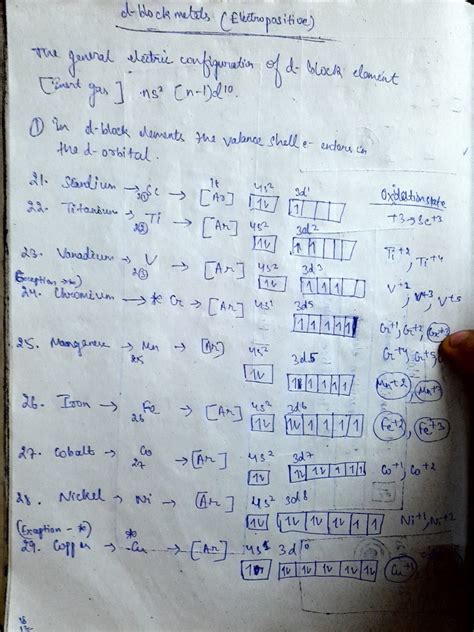 d-block metals (Electropositive)
The general electric configuration of d-block element
[Inert gas] ns² (n-1)d¹⁰.
① In d-block elements the valance shell e- enters in
the d-orbital.
Oxidation state
21. Scandium → Sc → [Ar] 4s² 3d¹ +3 → Sc+3
22. Titanium → Ti → [Ar] 4s² 3d² Ti+2, Ti+4
23. Vanadium → V → [Ar] 4s² 3d³ V+2, V+3, V+5
24. Chromium → * Cr → [Ar] 4s¹ 3d5 Cr+1, Cr+2, Cr+3
25. Manganese → Mn → [Ar] 4s² 3d5 Mn+2, Mn+3
26. Iron → Fe → [Ar] 4s² 3d6 Fe+2, Fe+3
27. Cobalt → Co → [Ar] 4s² 3d7 Co+1, Co+2
28. Nickel → Ni → [Ar] 4s² 3d8 Ni+1, Ni+2
(Exception - *)
29. Copper → Cu → [Ar] 4s¹ 3d¹⁰ Cu+1